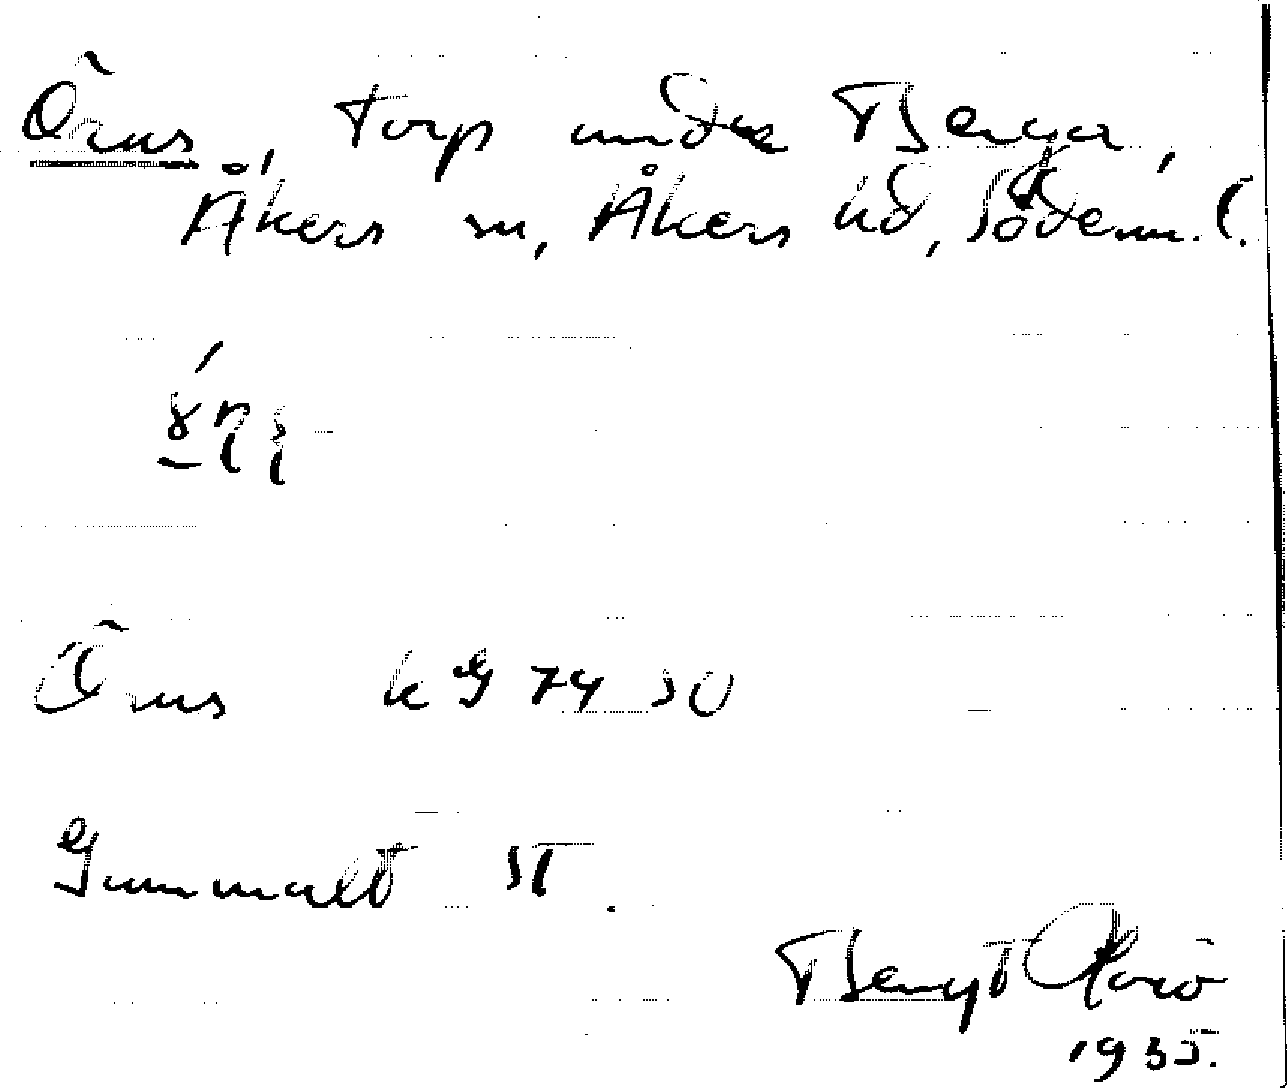 Örns, torp under Berga,
Åkers sn, Åkers hd, Söderm. l.
Örns k G 74 30
Gammalt st.
Bengt
1935.